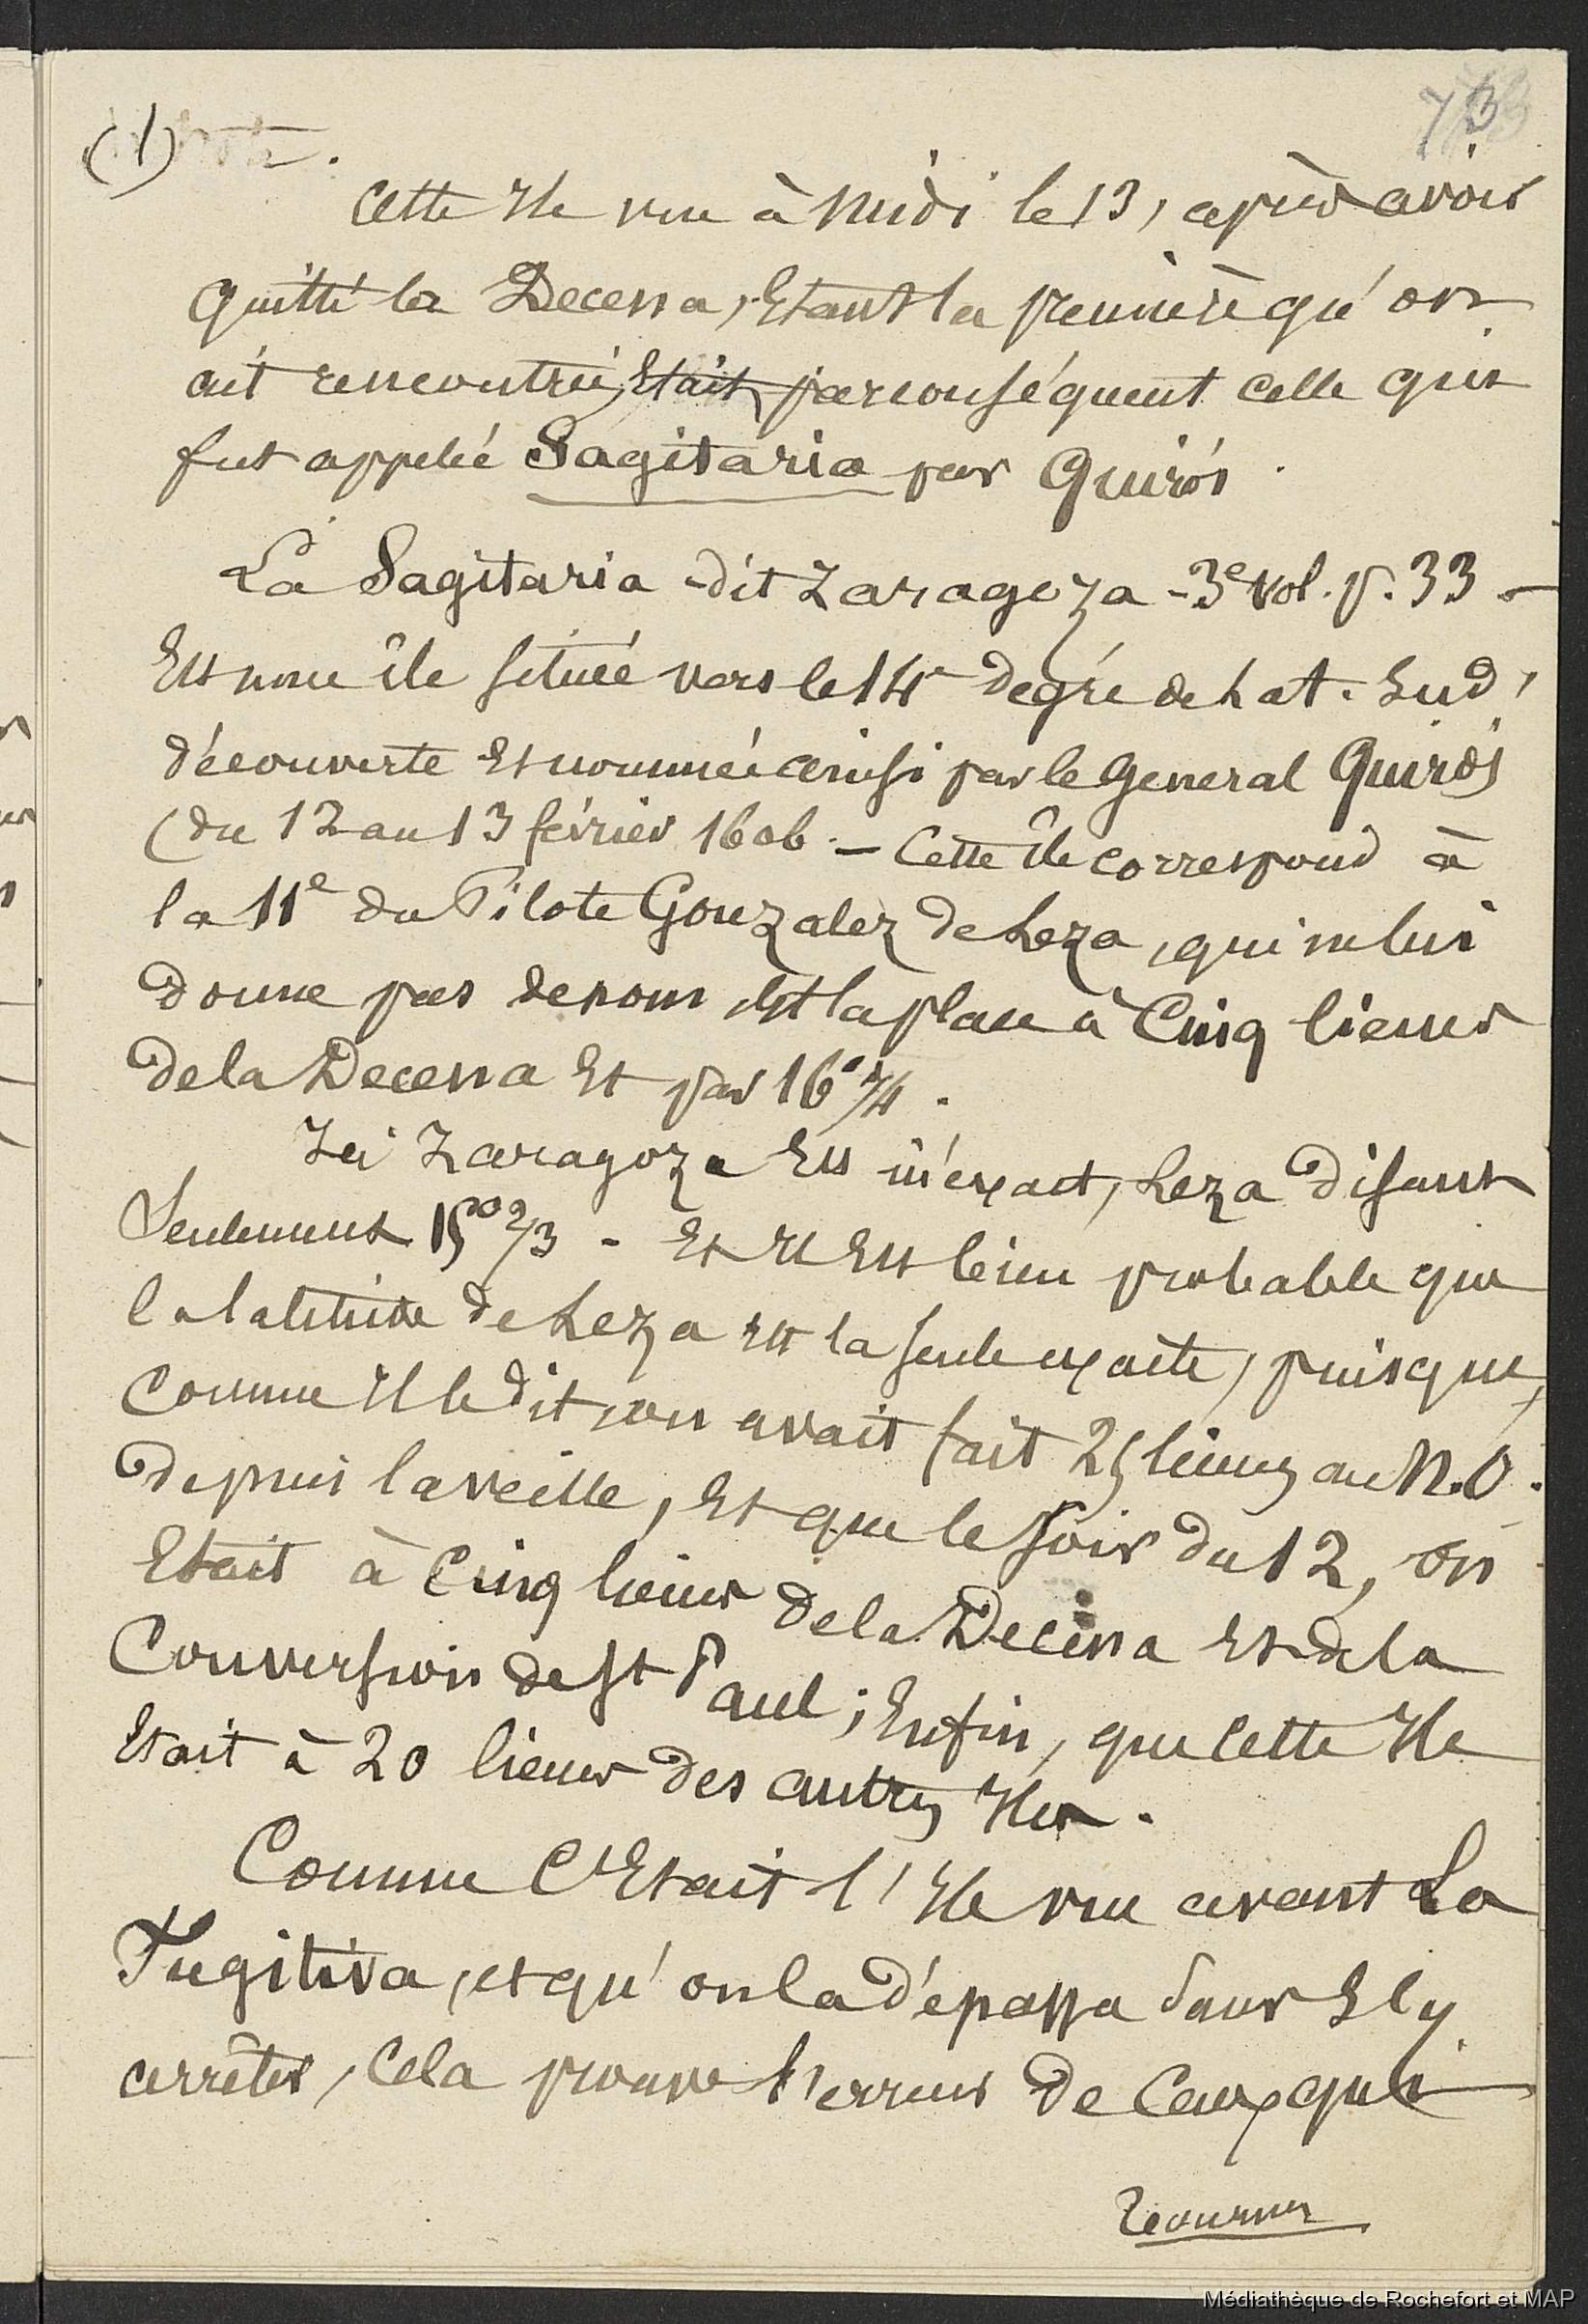 73
(1) Nota.
Cette Ile vue à Midi le 13, après avoir
quitté la Decena, Etant la première qu'on
ait rencontrée, Etait par conséquent celle qui
fut appelée Sagitaria par Quirós.
La Sagitaria - dit Zaragoza - 3e vol. p. 33 -
Est une île située vers le 14e degré de Lat. Sud,
découverte Et nommée ainsi par le General Quirós
(du 12 au 13 février 1606 - Cette île correspond à
la 11e du Pilote Gonzalez de Leza, qui ne lui
donne pas de nom Et la place à Cinq lieues
de la Decena Et par 16°1/4.
Ici Zaragoza Est inéxact, Leza disant
Seulement 15° 2/3 - Et Il Est bien probable que
la latitude de Leza Est la seule exacte, puisque,
Comme Il le dit, on avait fait 25 lieues au N.O.
depuis la veille, Et que le soir du 12, on
Etait à Cinq lieues de la Decena Et de la
Conversion de St Paul ; Enfin, que cette Ile
Etait à 20 lieues des autres Iles.
Comme C'Etait l'Ile vue avant La
Fugitiva, et qu'on la dépassa sans S'y
arrêter, Cela prouve l'erreur de Ceux qui
Tourner
Médiathèque de Rochefort et MAP